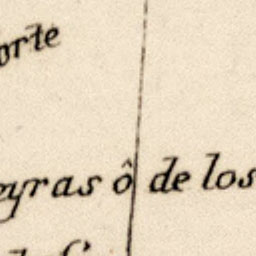 orte
eyras ô de los